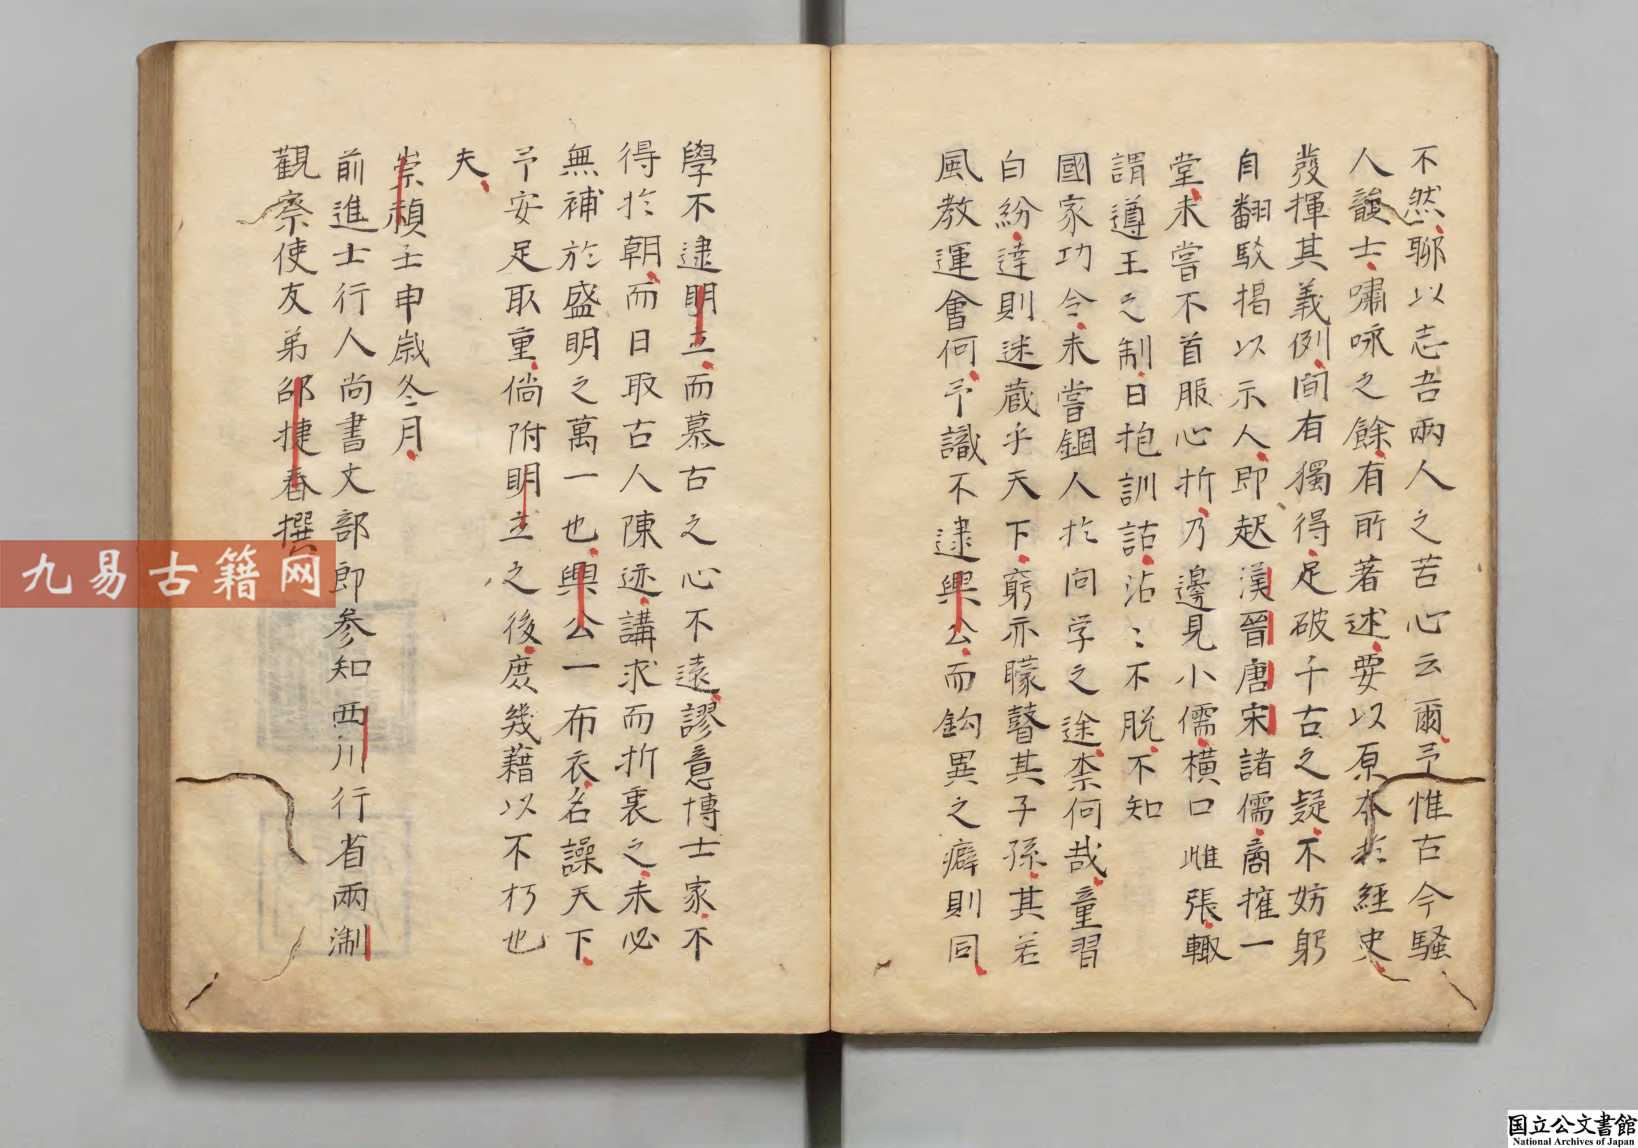 不然聊以志吾兩人之苦心云爾予惟古今騷
人誰士嘯咏之餘有所著述要以原本於經史
發揮其義例間有獨得足破千古之疑不妨躬
自翻駁揭以示人即起漢晉唐宋諸儒商搉一
堂未嘗不首服心折乃邊見小儒橫口雌張輙
謂遵王之制日抱訓詁沾〻不脫不知
國家功令未嘗錮人於向学之途柰何哉童習
白紛達則迷蔵乎天下窮亦矇瞽其子孫其若
風教運會何予識不逮興公而鈎異之癖則同
學不逮明立而慕古之心不遠謬意博士家不
得於朝而日取古人陳迹講求而折衷之未必
無補於盛明之萬一也興公一布衣名譟天下
予安足取重倘附明立之後庶幾藉以不朽也
夫
崇禎壬申歲冬月
前進士行人尚書文部郎參知西川行省兩淛
觀察使友弟邵捷春撰
九易古籍网
国立公文書館
National Archives of Japan